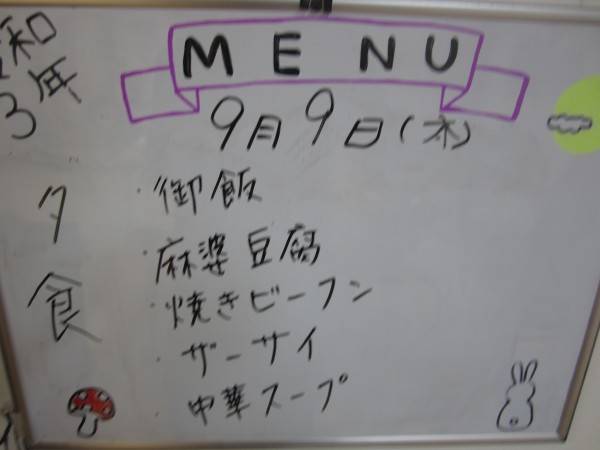 MENU
和
3年
9月9日(木)
夕食
・御飯
・麻婆豆腐
・焼きビーフン
・ザーサイ
中華スープ